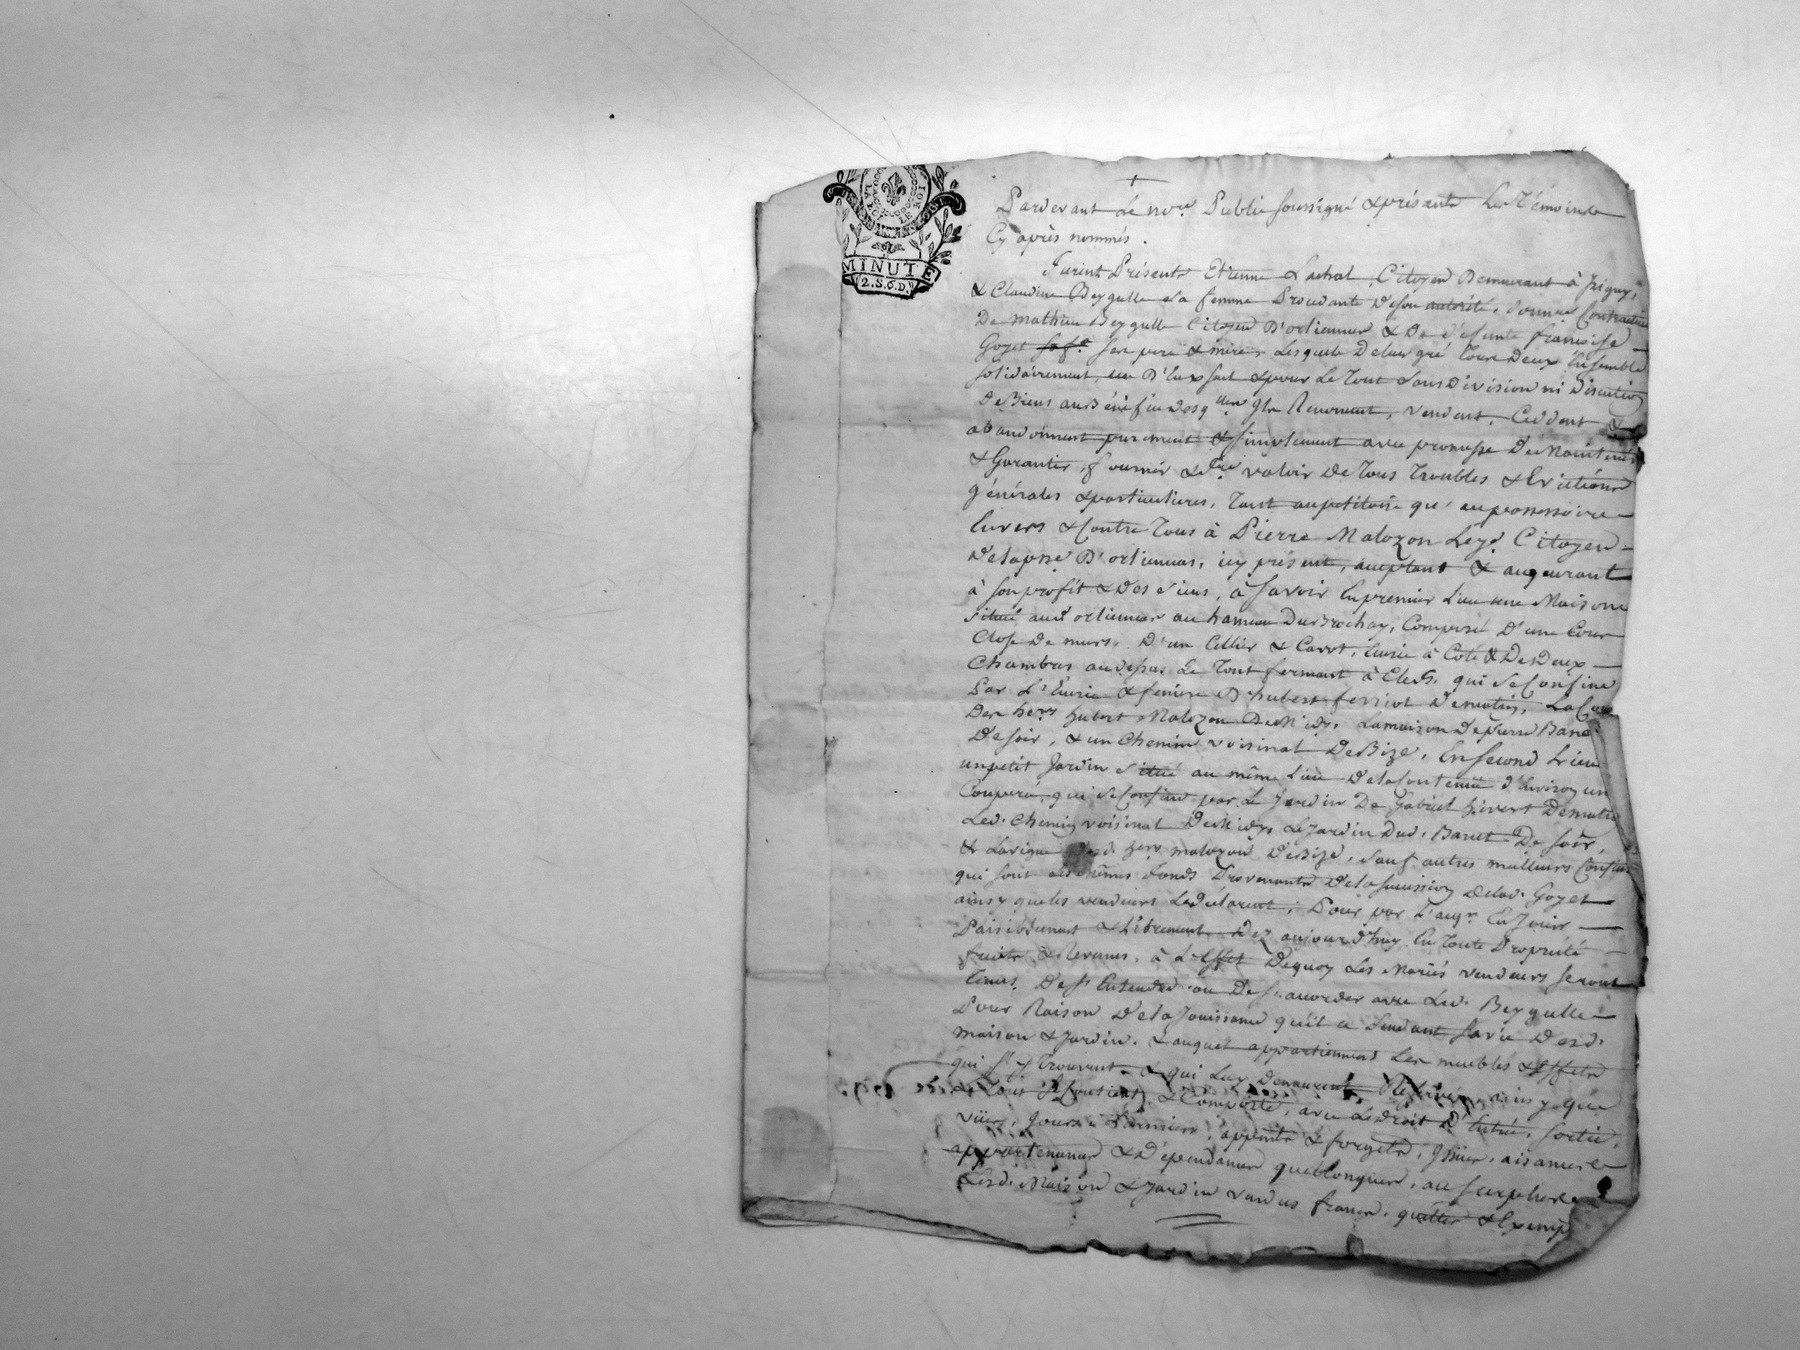 LA LOI LE ROI
MINUTE
2.S.6.D.
Pardevant Le no.re Public soussigné & présants Les Témoins
Cy après nommés.
Furint Présents Etienne Lachal, Citoyen Demeurant à Irigny,
& Claudine Beygulle sa femme Procedante De son autorité,
De Mathieu Beygulle Citoyen D'orlienas & De Defunte françoise
Goyet ses pere & mere, Lesquels De leur gré Tous Deux Ensemble
solidairement, un D'eux seul & pour Le Tout sans Division ni Discution
De Biens au Bénéfice Desq.lles Ils Renoncent, vendent, Ceddent &
abandonnent purement & simplement avec promesse De Maintenir
& Garantir, fournir & f.re valoir De Tous Troubles & Evictions
générales & particulieres, Tant au petitoire qu'au possessoire
Envers & Contre Tous à Pierre Malozon Citoyen
De la p.sse D'orlienas, icy présent, acceptant & acquerant
à son profit & Des siens, à Savoir En premier Lieu une Maison
située aud. orlienas au hameau Du Brochay, Composé D'une Cour
Close De murs, D'un Cellier & Cavot, Ecurie à Coté & De Deux
Chambres au Dessus Le Tout fermant à Clefs, qui se Confine
Par L'Ecurie & feniere D'hubert ferriot De matin, La Cour
Des her.s hubert Malozon De Midy, La maison De Pierre Banet
De soir, & un Chemin voisinal De Bize, En second Lieu
un petit Jardin situé au même Lieu De la Contenue d'Environ un
Couperé, qui se Confine par Le Jardin De Gabriel Givert De matin
Led. Chemin voisinal De Midy, Le Jardin Dud. Banet De soir,
& La vigne Desd. her.s malozon De Bize, sauf autres meilleurs Confins
qui sont Les mêmes fonds Provenants De la succession De lad. Goyet
ainsy que les vendeurs Le Déclarent; Pour par L'acq.r En Jouir
Paisiblement & Librement Dez aujourd'huy En Toute Propriété
fruits & Revenus, à L'Effet Dequoy Les Mariés vendeurs seront
Tenus De s'Entendre ou De s'accorder avec Led. Beygulle
Pour Raison De la Jouissance qu'il a Pendant sa vie Desd.
Maison & Jardin, & auquel appartiennent Les meubles & Effets
qui s'y Trouvent & qui Luy Demeurent Réservés, ainsy que
Le Tout se Contient & Comporte, avec Le Droit D'Entrée, sortie,
vües, Jours, appents & forgets, Issües, aisances
appartenances & Dépendances quelconques, au surplus
Lesd. Maison & Jardin vendus francs, quittes & Exempts